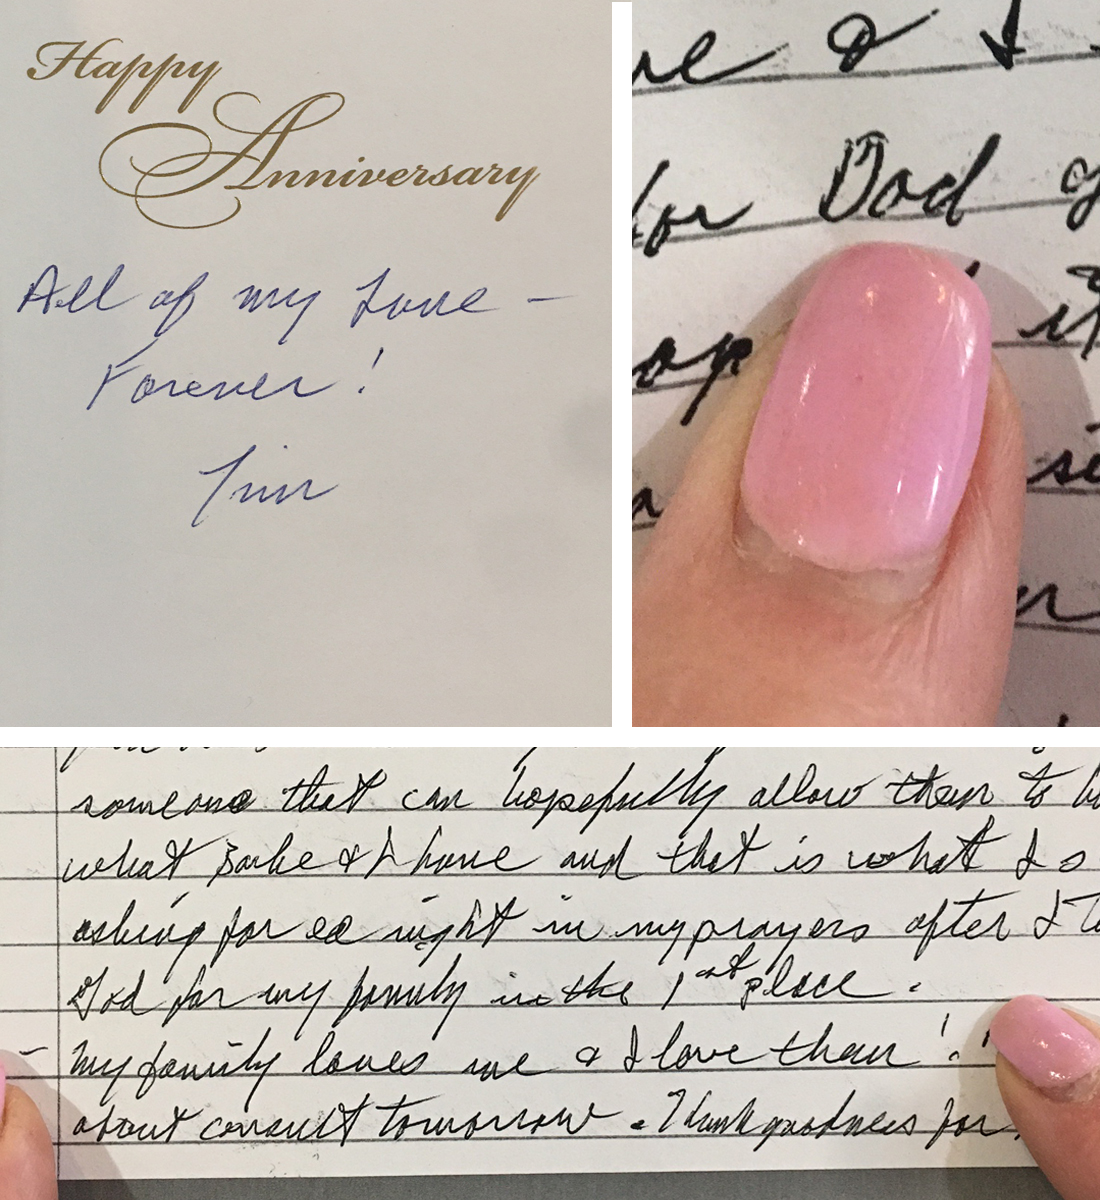 Happy
Anniversary
All of my Love –
Forever!
Tim
me & I
for Dad
it
er
someone that can hopefully allow them to
what & I have and that is what I
asking for ea night in my prayers after I
God for my family in the 1st place.
– My family loves me & I love them!
about consult tomorrow. Thank goodness for